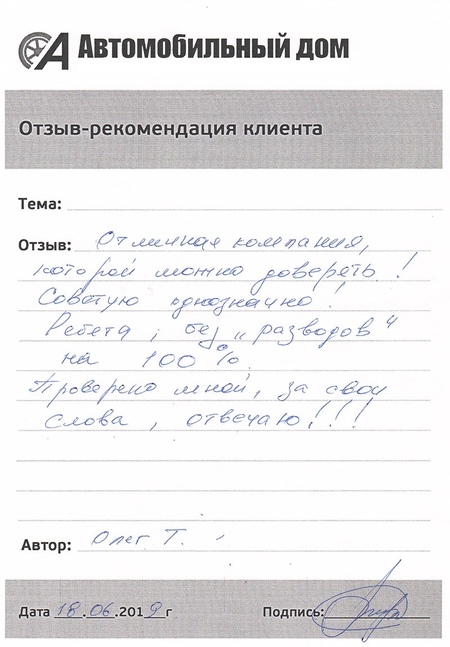 Автомобильный дом
Отзыв-рекомендация клиента
Тема:
Отзыв: Отличная компания,
которой можно доверять !
Советую однозначно !
Ребята , без „разводов“
на 100 %
Проверено мной, за свои
слова , отвечаю!!!
Автор: Олег Т.
Дата 18.06.2019г Подпись: